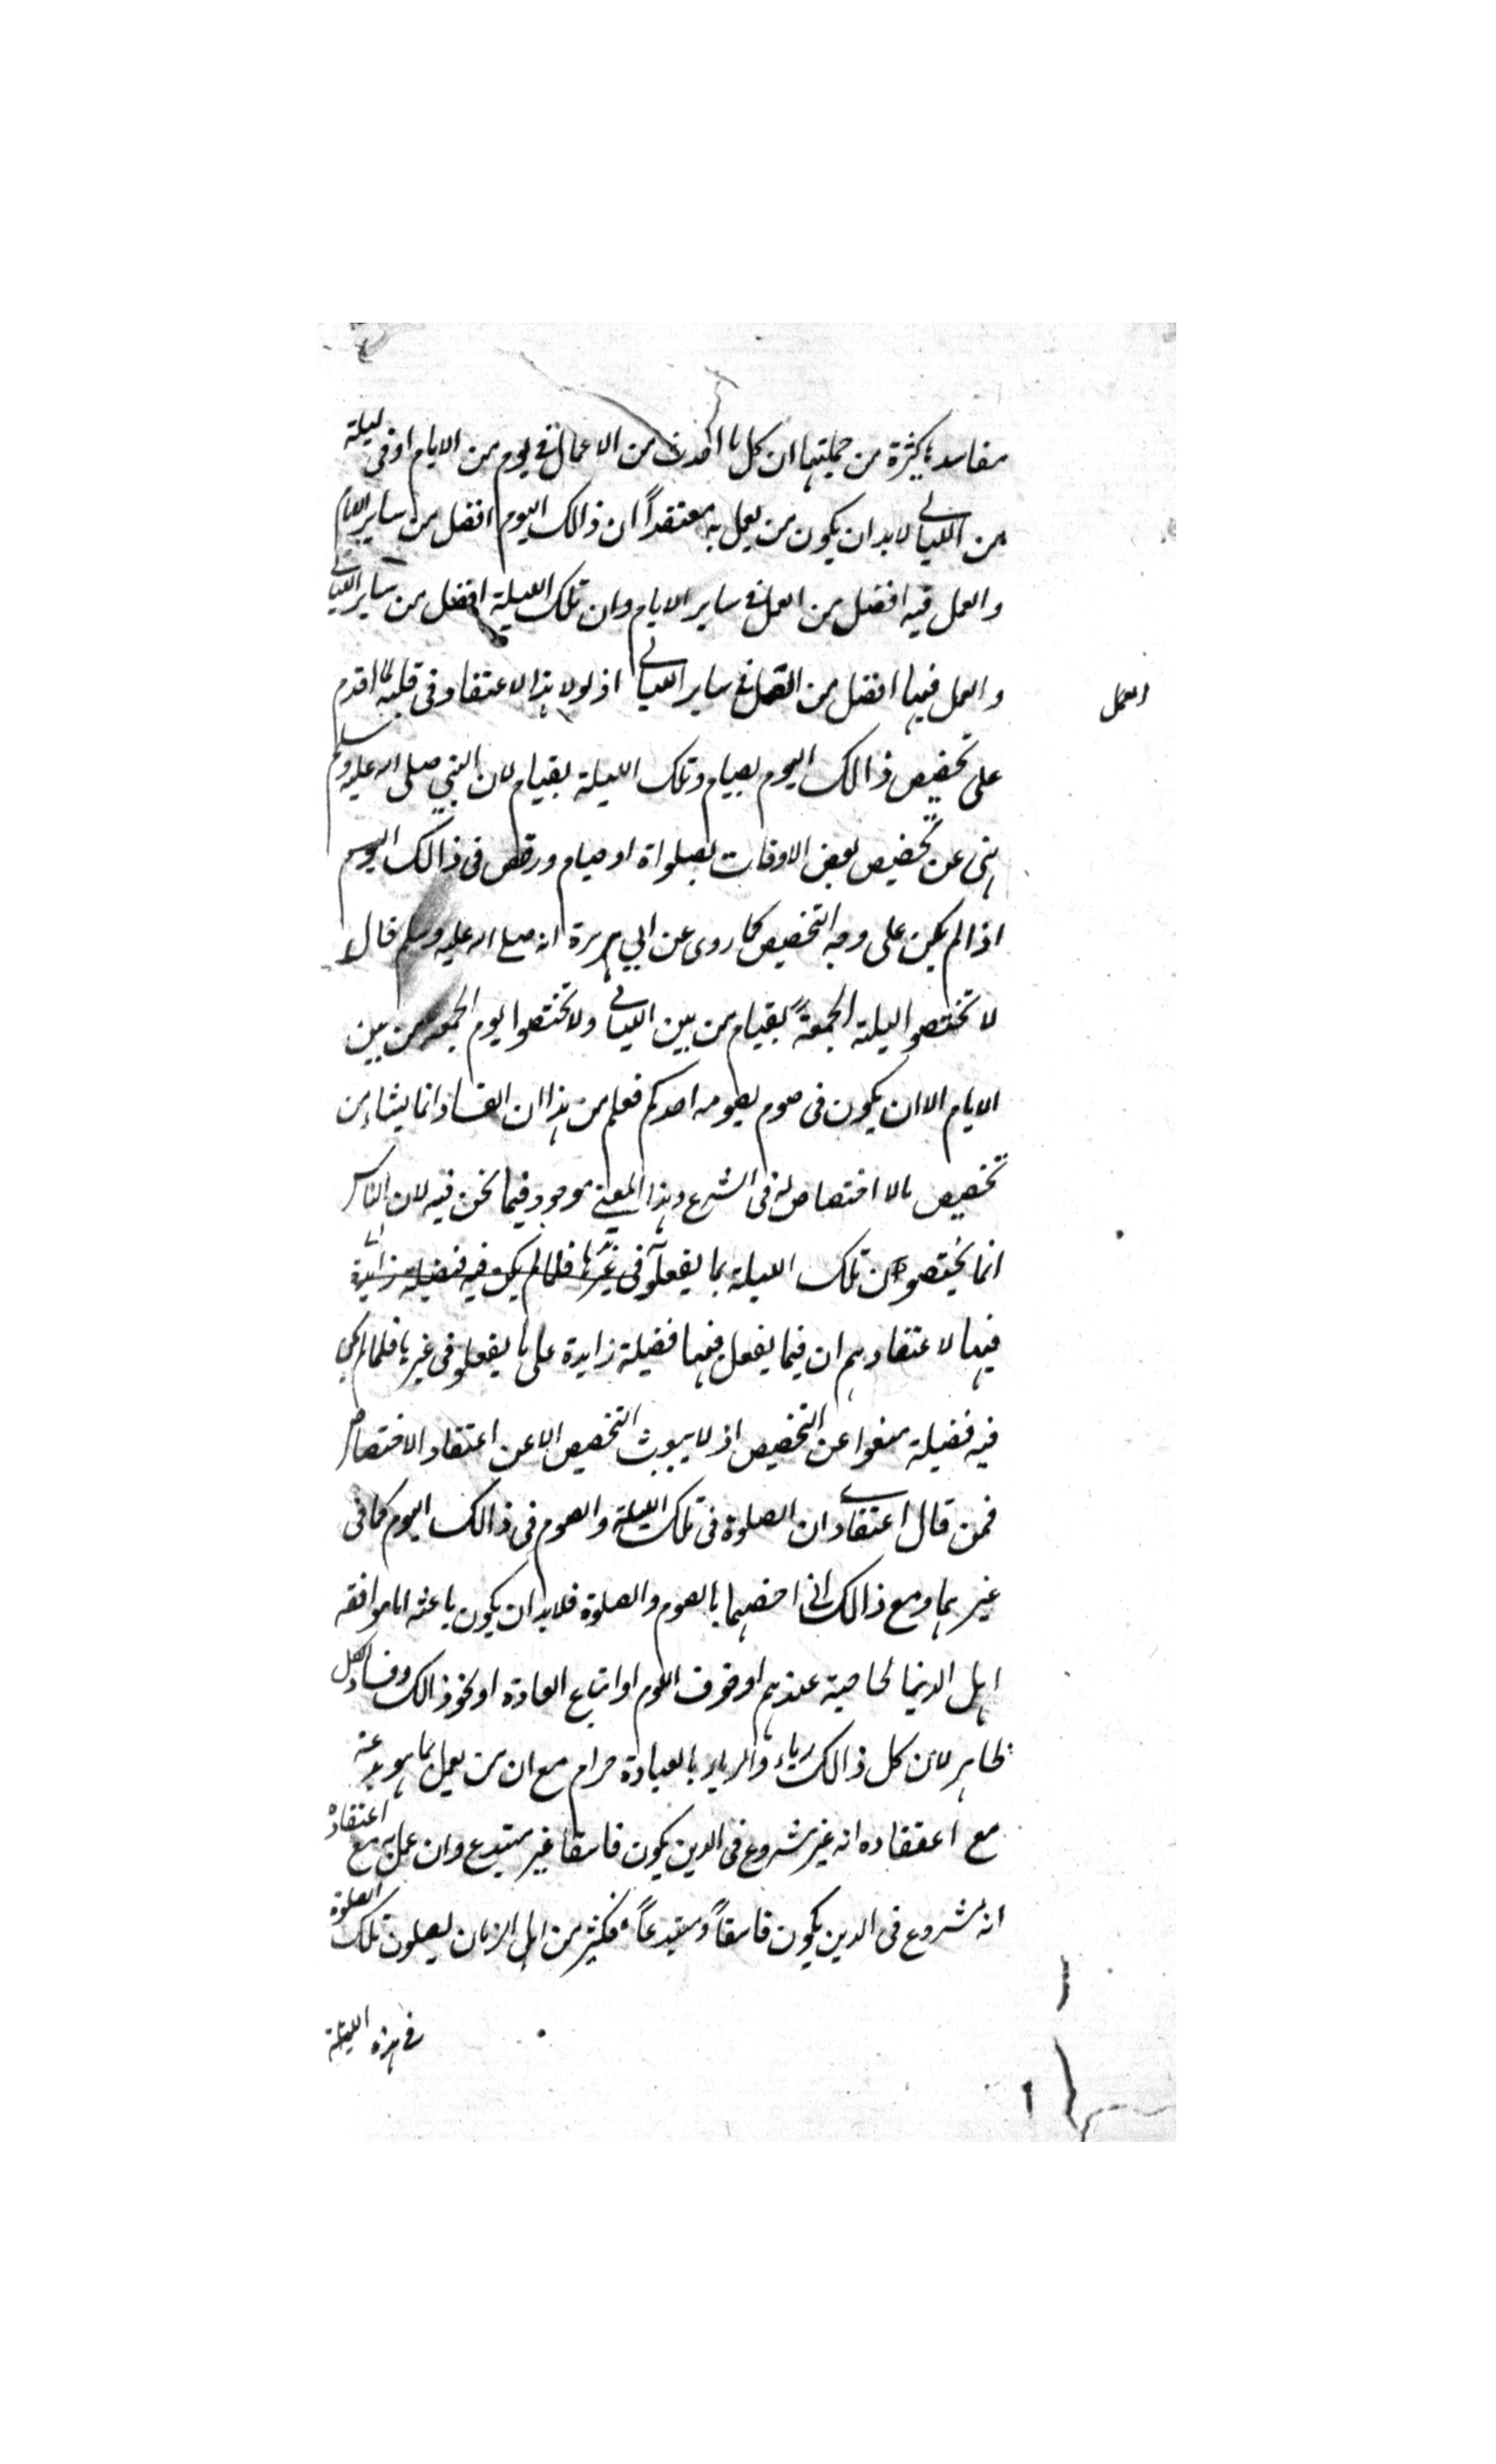 مفاسد كثيرة من جملتها ان كل ما احدث من الاعمال فى يوم من الايام او فى ليلة
من الليالى لا بد ان يكون من يعمل به معتقداً ان ذالك اليوم افضل من ساير الايام
والعمل فيه افضل من العمل فى ساير الايام وان تلك الليلة افضل من ساير الليالى
والعمل فيها افضل من العمل فى ساير الليالى اذ لولا هذا الاعتقاد فى قلبه لما اقدم
العمل
على تخصيص ذالك اليوم بصيام وتلك الليلة بقيام لان النبي صلى الله عليه وسلم
نهى عن تخصيص بعض الاوقات بصلواة او صيام ورخص فى ذالك اليوم
اذا لم يكن على وجه التخصيص كما روى عن ابي هريرة انه صلى الله عليه وسلم قال
لا تختصوا ليلة الجمعة بقيام من بين الليالى ولا تختصوا يوم الجمعة من بين
الايام الا ان يكون فى صوم يصومه احدكم فعلم من هذا ان الفساد انما ينشاء من
تخصيص مالا اختصاص له فى الشرع وهذا المعنى موجود فيما نحن فيه لان الناس
انما يختصون تلك الليلة بما يفعلو فى غيرها فلما لم يكن فيه فضيلة زائدة
فيها لاعتقادهم ان فيما يفعل فيها فضيلة زايدة على ما يفعلو فى غيرها فلما لم يكن
فيه فضيلة منعوا عن التخصيص اذ لا يبوث التخصيص الا عن اعتقاد الاختصاص
فمن قال اعتقادى ان الصلوة فى تلك الليلة والصوم فى ذالك اليوم كما فى
غيرهما ومع ذالك انى اخصهما بالصوم والصلوة فلا بد ان يكون باعثه اما موافقة
اهل الدنيا لخاصية عندهم او خوف اللوم او اتباع العادة او نحو ذالك وفساد الكل
ظاهر لان كل ذالك رياء والرياء بالعبادة حرام مع ان من يعمل بما هو بدعة
مع اعتقاده انه غير مشروع فى الدين يكون فاسقا غير مبتدع وان عمل به مع اعتقاده
انه مشروع فى الدين يكون فاسقاً ومبتدعاً فكثير من اهل الزمان يصلون تلك الصلوة
فى هذه الليلة